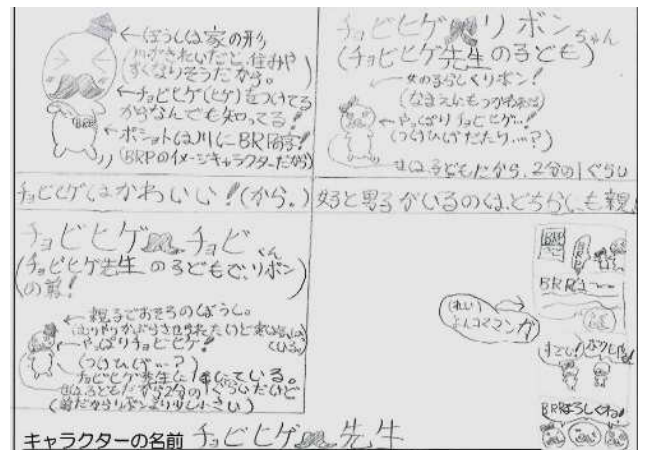 ←ぼうしは家の形
(川がきれいだと、住みや
すくなりそうだから。)
←チョビヒゲ(ヒゲ)をつけてる
からなんでも知ってる!
←ポシェットは川にBRP
(BRPのイメージキャラクターだから)
チョビヒゲはかわいい!(から。)
チョビヒゲリボンちゃん
(チョビヒゲ先生の子ども)
女の子らしくリボン!
(なまえにもつかわれた)
←やっぱりチョビヒゲ…!
(つけひげだたり…?)
子どもだから、2分の1ぐらい
女子と男子がいるのは、どちらにも親
チョビヒゲ チョビくん
(チョビヒゲ先生の子どもで、リボン
の弟!)
親子でおそろのぼうし。
←やっぱりチョビヒゲ!
(つけひげ…?)
チョビヒゲ先生に1番にている。
子どもだから2分の1ぐらいだけど
(弟だからリボンより少し小さい)
(れい)
よんコママンガ
BRP
BRPは〜〜
すごい!
BRPよろしくね
キャラクターの名前 チョビヒゲ先生